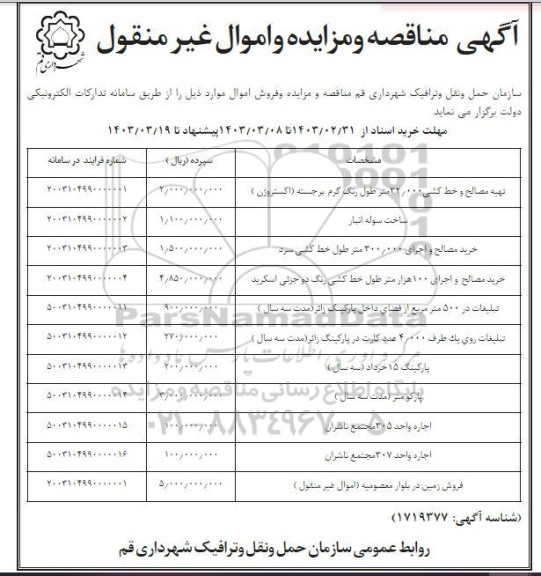 آگهی مناقصه ومزایده واموال غیر منقول
شهرداری قم
سازمان حمل ونقل وترافیک شهرداری قم مناقصه و مزایده وفروش اموال موارد ذیل را از طریق سامانه تدارکات الکترونیکی
دولت برگزار می نماید
مهلت خرید اسناد از ۱۴۰۳/۰۲/۳۱تا ۱۴۰۳/۰۳/۰۸پیشنهاد تا ۱۴۰۳/۰۳/۱۹
مشخصات سپرده (ریال) شماره فرایند در سامانه
تهیه مصالح و خط کشی۳۲٫۰۰۰متر طول رنگ گرم برجسته (اکستروژن) ۲٫۰۰۰٫۰۰۰٫۰۰۰ ۲۰۰۳۱۰۴۹۹۰۰۰۰۰۰۱
ساخت سوله انبار ۱٫۱۰۰٫۰۰۰٫۰۰۰ ۲۰۰۳۱۰۴۹۹۰۰۰۰۰۰۲
خرید مصالح و اجرای ۳۰۰٫۰۰۰ متر طول خط کشی سرد ۱٫۵۰۰٫۰۰۰٫۰۰۰ ۲۰۰۳۱۰۴۹۹۰۰۰۰۰۰۳
خرید مصالح و اجرای ۱۰۰هزار متر طول خط کشی رنگ دو جزئی اسکرید ۴٫۸۵۰٫۰۰۰٫۰۰۰ ۲۰۰۳۱۰۴۹۹۰۰۰۰۰۰۴
تبلیغات در ۵۰۰ متر مربع از فضای داخل پارکینگ زائر(مدت سه سال) ۹۰۰٫۰۰۰٫۰۰۰ ۵۰۰۳۱۰۴۹۹۰۰۰۰۰۱۱
تبلیغات روی یك طرف ۴٫۰۰۰ عدد کارت در پارکینگ زائر(مدت سه سال) ۲۷۰٫۰۰۰٫۰۰۰ ۵۰۰۳۱۰۴۹۹۰۰۰۰۰۱۲
پارکینگ ۱۵خرداد (سه سال) ۲۰۰٫۰۰۰٫۰۰۰ ۵۰۰۳۱۰۴۹۹۰۰۰۰۰۱۳
پارکومتر (مدت سه سال) ۵۰۰۳۱۰۴۹۹۰۰۰۰۰۱۴
اجاره واحد ۳۰۵مجتمع ناشران ۱۰۰٫۰۰۰٫۰۰۰ ۵۰۰۳۱۰۴۹۹۰۰۰۰۰۱۵
اجاره واحد ۳۰۷مجتمع ناشران ۱۰۰٫۰۰۰٫۰۰۰ ۵۰۰۳۱۰۴۹۹۰۰۰۰۰۱۶
فروش زمین در بلوار معصومیه (اموال غیر منقول) ۵٫۰۰۰٫۰۰۰٫۰۰۰ ۲۰۰۳۱۰۴۹۹۰۰۰۰۰۰۱
ParsNamadData
مرکز فرآوری اطلاعات پارس نماد داده ها
پایگاه اطلاع رسانی مناقصه و مزایده
۰۲۱-۸۸۳۴۹۶۷۰-۵
(شناسه آگهی: ۱۷۱۹۳۷۷)
روابط عمومی سازمان حمل ونقل وترافیک شهرداری قم